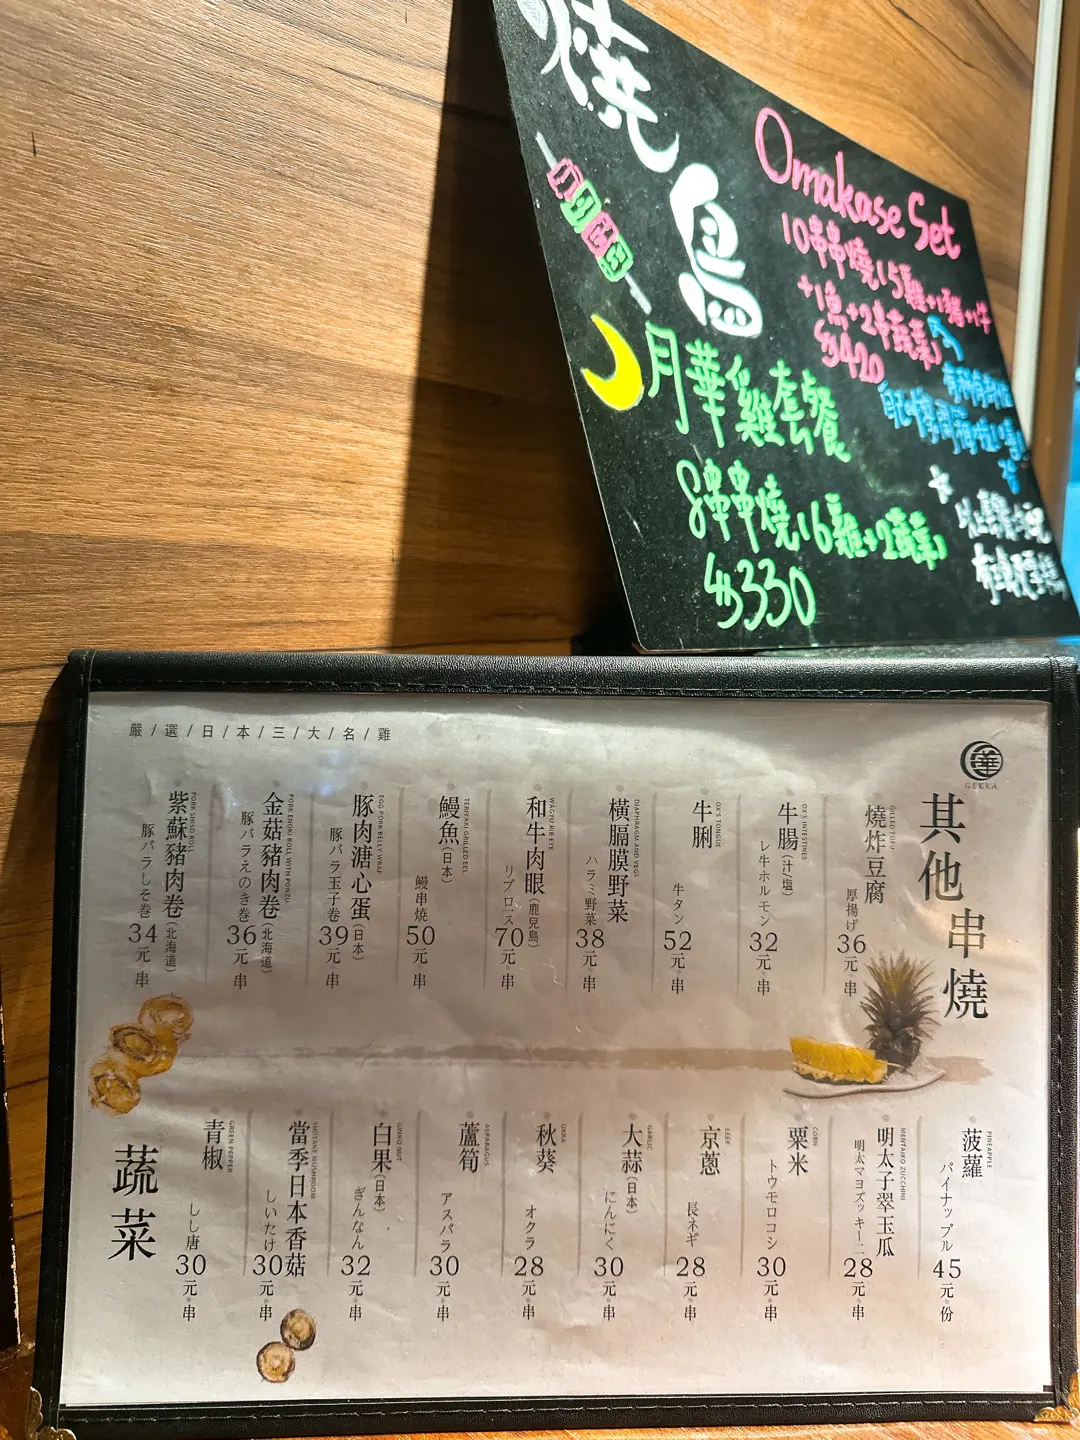 燒鳥
Omakase Set
10串串燒(5雞+1豬+1牛
+1魚+2串蔬菜)
$420
月華雞套餐
8串串燒(6雞+2蔬菜)
$330
嚴/選/日/本/三/大/名/雞
華
GEKKA
其他串燒
燒炸豆腐
厚揚げ
36元·串
OX'S INTESTINES
牛腸(汁/塩)
レ牛ホルモン
32元·串
OX'S TONGUE
牛脷
牛タン
52元·串
DIAPHRAGM AND VEGS
橫膈膜野菜
ハラミ野菜
38元·串
WAGYU RIB EYE
和牛肉眼(鹿兒島)
リブロース
70元·串
TERIYAKI GRILLED EEL
鰻魚(日本)
鰻串燒
50元·串
EGG PORK BELLY WRAP
豚肉溏心蛋(日本)
豚バラ玉子卷
39元·串
PORK ENOKI ROLL WITH PONZU
金菇豬肉卷(北海道)
豚バラえのき卷
36元·串
PORK SHISO ROLL
紫蘇豬肉卷(北海道)
豚バラしそ卷
34元·串
PINEAPPLE
菠蘿
パイナップル
45元·份
MENTAIKO ZUCCHINI
明太子翠玉瓜
明太マヨズッキーニ
28元·串
CORN
粟米
トウモロコシ
30元·串
LEEK
京蔥
長ネギ
28元·串
GARLIC
大蒜(日本)
にんにく
30元·串
OKRA
秋葵
オクラ
28元·串
ASPARAGUS
蘆筍
アスパラ
30元·串
GINKO NUT
白果(日本)
ぎんなん
32元·串
SHIITAKE MUSHROOM
當季日本香菇
しいたけ
30元·串
GREEN PEPPER
青椒
しし唐
30元·串
蔬菜